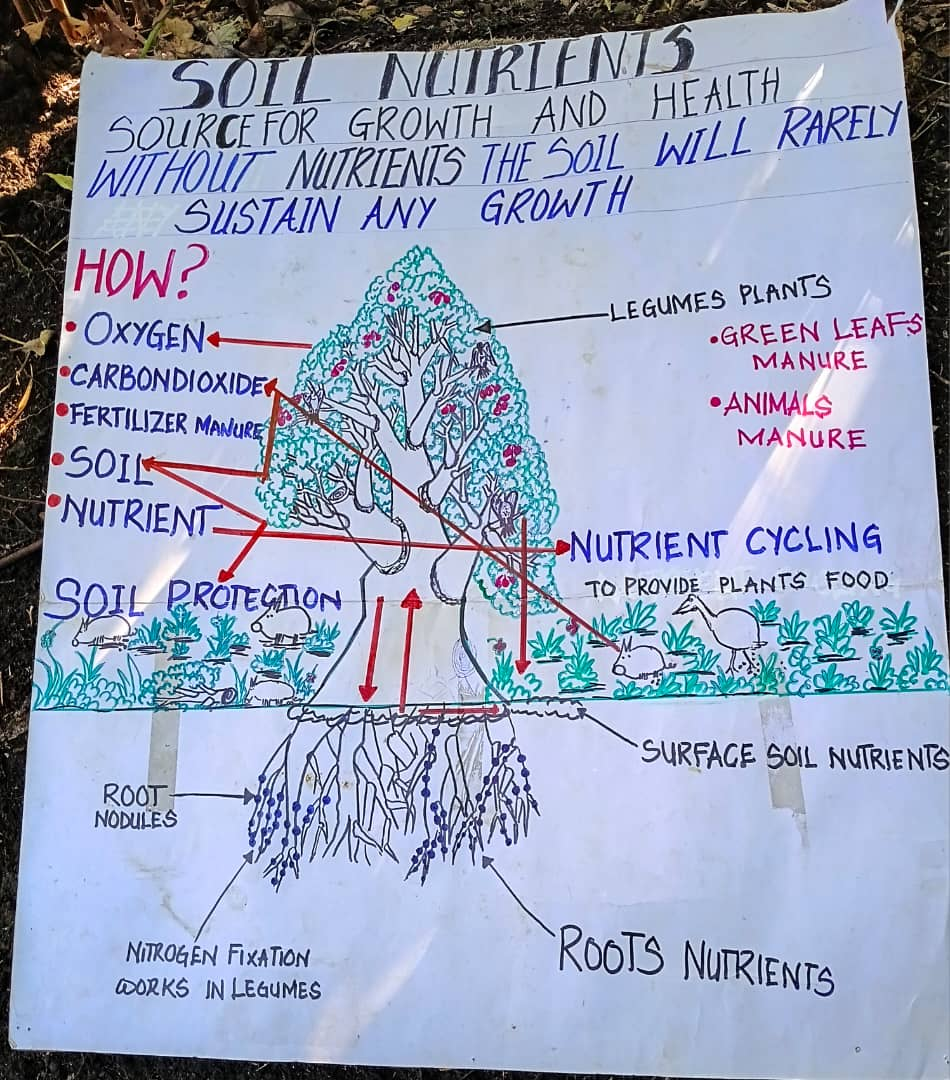 SOIL NUTRIENTS
SOURCE FOR GROWTH AND HEALTH
WITHOUT NUTRIENTS THE SOIL WILL RARELY
SUSTAIN ANY GROWTH
HOW?
• OXYGEN
• CARBONDIOXIDE
• FERTILIZER MANURE
• SOIL
• NUTRIENT
SOIL PROTECTION
LEGUMES PLANTS
• GREEN LEAFS
MANURE
• ANIMALS
MANURE
NUTRIENT CYCLING
TO PROVIDE PLANTS FOOD
SURFACE SOIL NUTRIENTS
ROOT
NODULES
NITROGEN FIXATION
WORKS IN LEGUMES
ROOTS NUTRIENTS